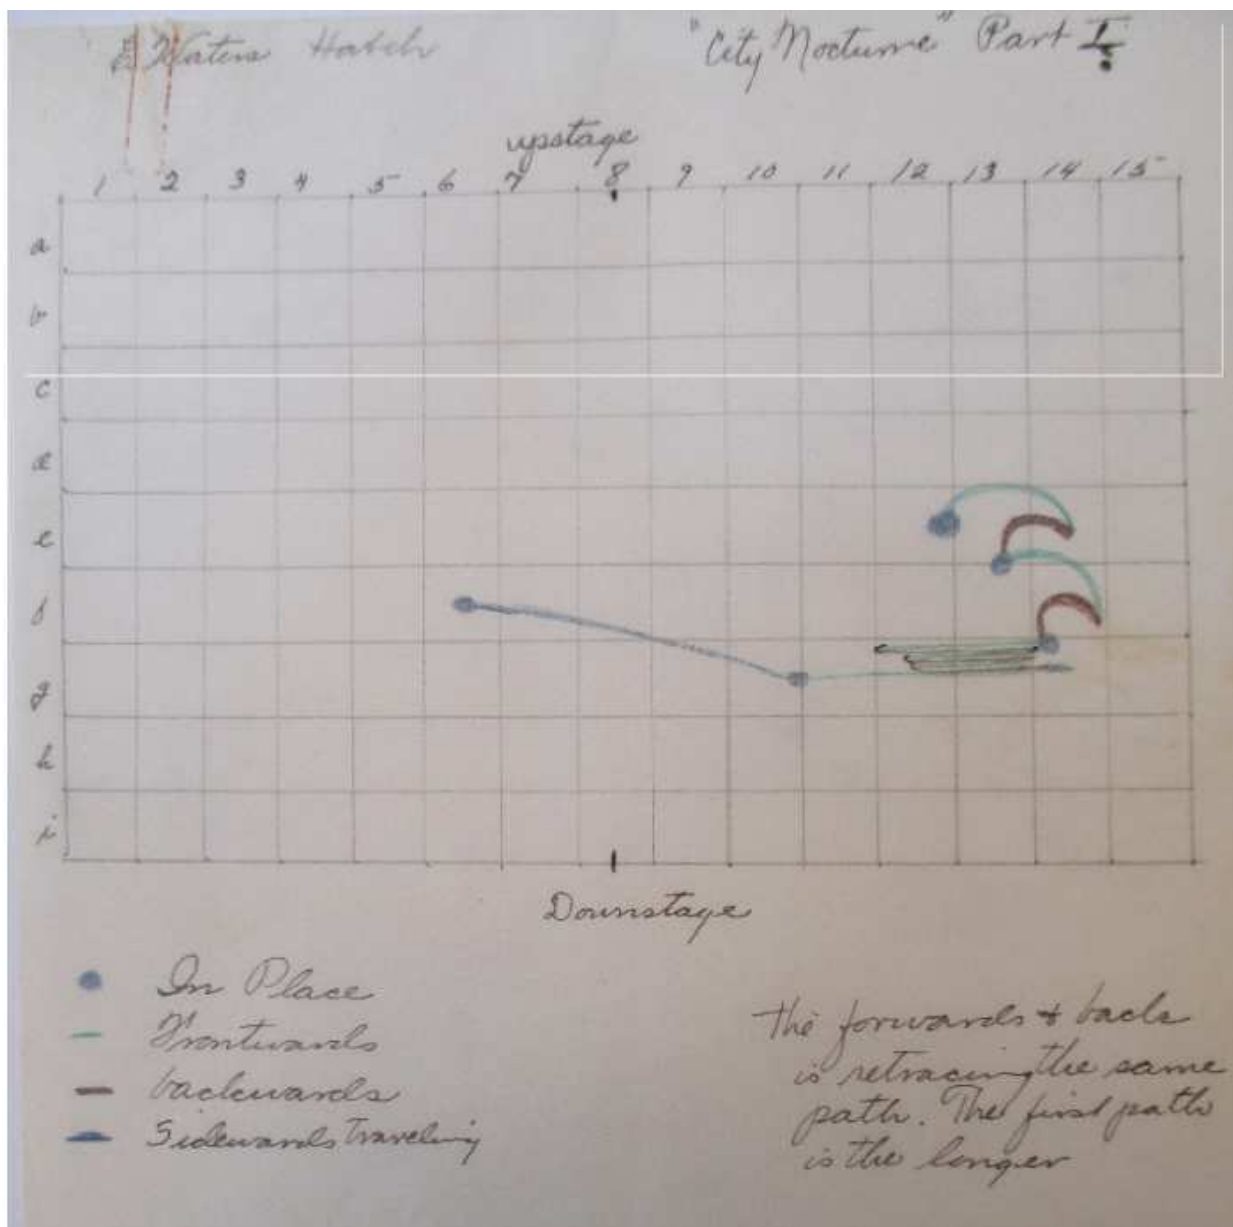 E Waters Hatch
"City Nocturne" Part I
upstage
1 2 3 4 5 6 7 8 9 10 11 12 13 14 15
a
b
c
d
e
f
g
h
i
Downstage
In Place
Frontwards
backwards
Sidewards Traveling
The forwards & backs
is retracing the same
path. The first path
is the longer